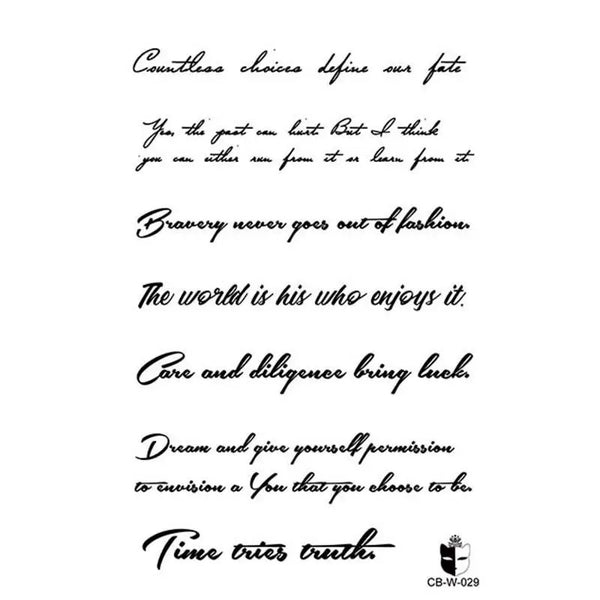 Countless choices define our fate
Yes, the past can hurt But I think
you can either run from it or learn from it.
Bravery never goes out of fashion.
The world is his who enjoys it.
Care and diligence bring luck.
Dream and give yourself permission
to envision a You that you choose to be.
Time tries truth.
CB-W-029